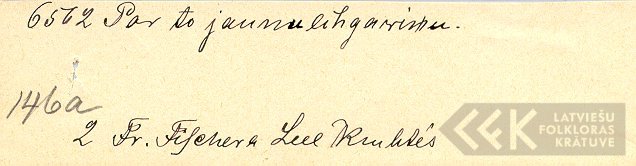 6562 Par to jaunu lihgawinu.
146a
2 Fr. Fischera Leel Kruhtès
LATVIEŠU
FOLKLORAS
KRĀTUVE